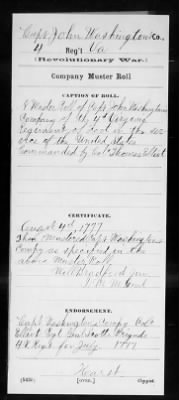 Capt. John Washington Co.
4 Reg't Va
(Revolutionary War.)
Company Muster Roll
CAPTION OF ROLL.
A Muster Roll of Capt. John Washingtons
Company of the 4th Virginia
Regiment of foot in the ser
vice of the United States
Commanded by Col. Thomas Elliot
CERTIFICATE.
August 4th 1777
Then Mustered Capt Washingtons
Compy as specified in the
above Muster Roll
Will Bradford Jun
D. M. M. Genl
ENDORSEMENT.
Capt Washingtons Compy Col.
Elliot Regt Genl Scotts Brigade
4 V Regt for July 1777
(543c) (over.) Copyist.